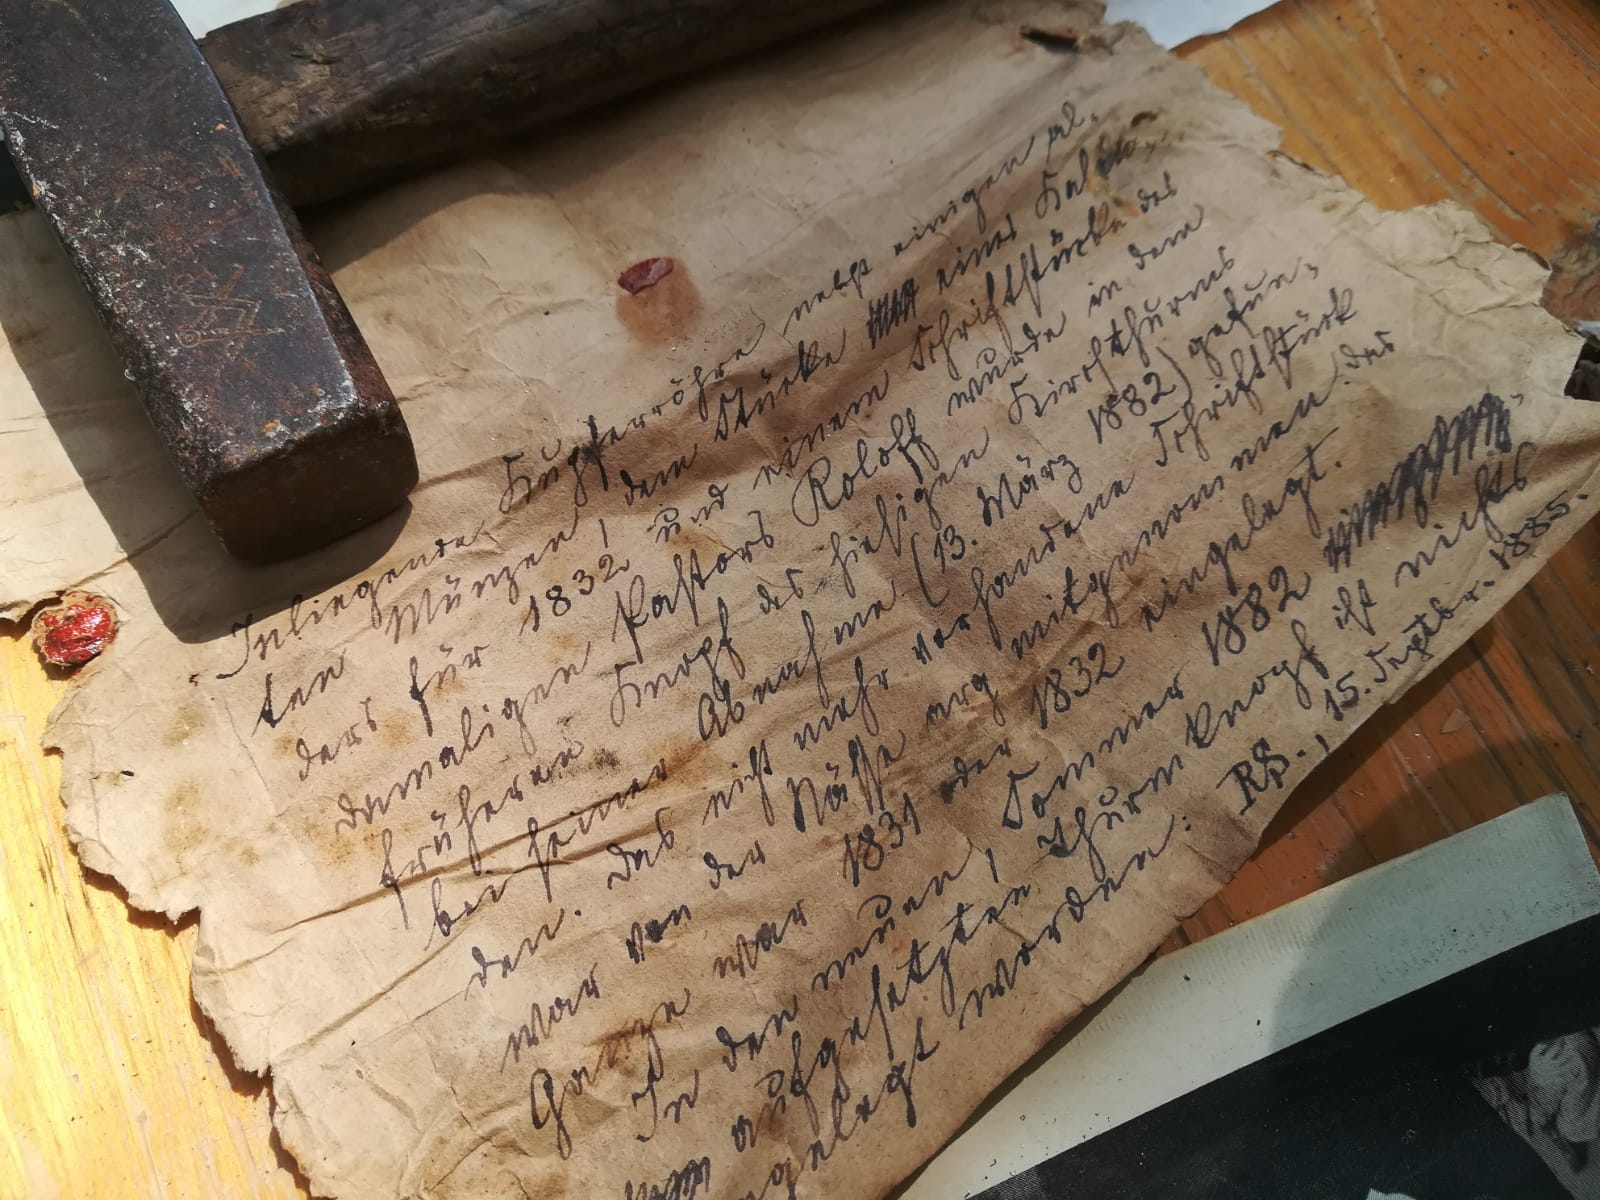 Inliegende Kupferröhre nebst einigen al-
ten Münzen, dem Stücke eines Kalen-
ders für 1832 und einem Schriftstücke des
damaligen Pastors Roloff wurde in dem
früheren Knopf des hiesigen Kirchthurms
bei seiner Abnahme (13. März 1882) gefun-
den. Das nicht mehr vorhandene Schriftstück
war von der Nässe arg mitgenommen. Das
Ganze war 1831 oder 1832 eingelegt.
In den neuen, Sommer 1882
aufgesetzten Thurmknopf ist nichts
gelegt worden. RS., 15. Septbr. 1885.